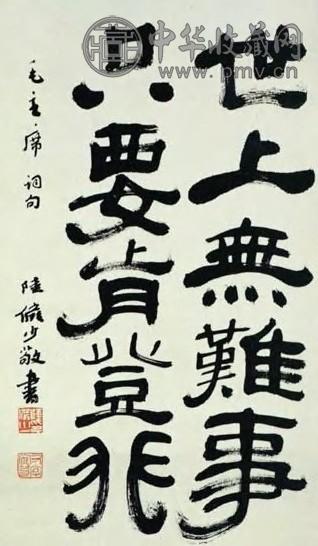 中华收藏网
www.pmv.cn
世上無難事
只要肯登攀
毛主席詞句
陸儼少敬書